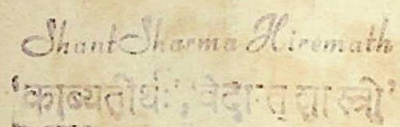 Shant Sharma Hiremath
'काव्यतीर्थ', 'वेदान्त शास्त्री'